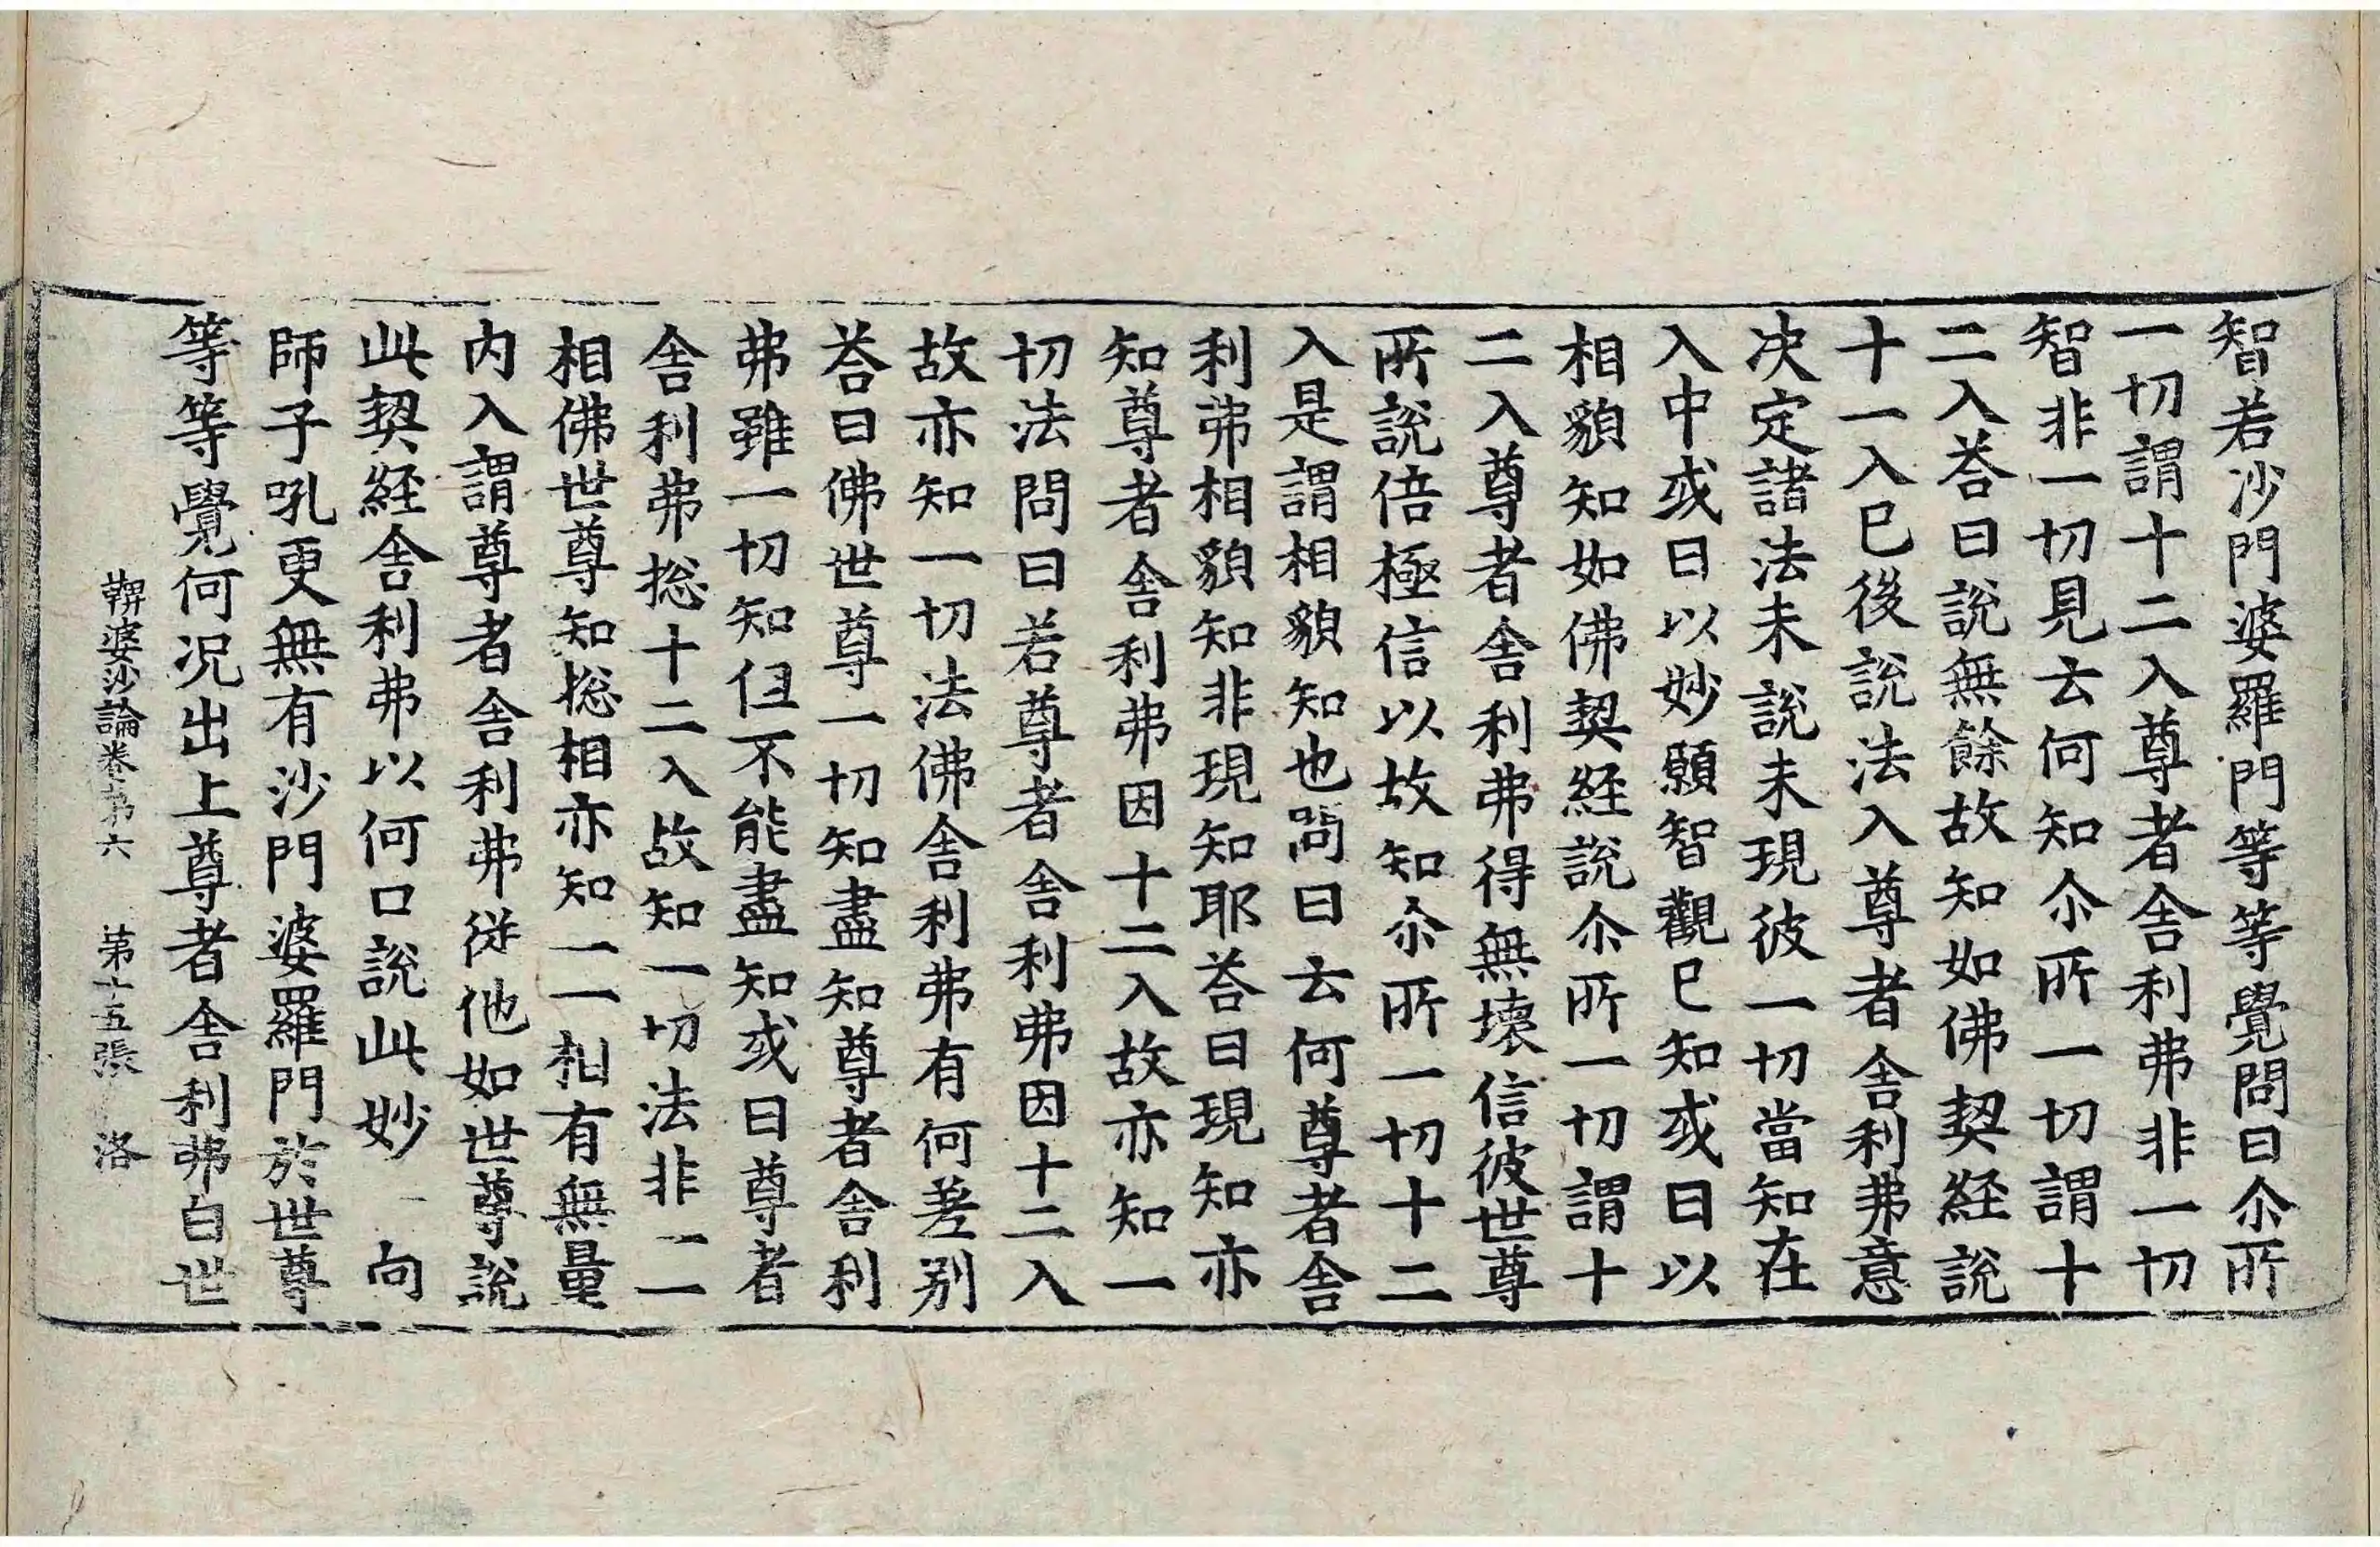 智若沙門婆羅門等等覺問曰尒所
一切謂十二入尊者舎利弗非一切
智非一切見云何知尒所一切謂十
二入荅曰說無餘故知如佛契経說
十一入已後說法入尊者舎利弗意
决定諸法未說未現彼一切當知在
入中或曰以妙願智觀已知或曰以
相貌知如佛契経說尒所一切謂十
二入尊者舎利弗得無壞信彼世尊
所說倍極信以故知尒所一切十二
入是謂相貌知也問曰云何尊者舎
利弗相貌知非現知耶荅曰現知亦
知尊者舎利弗因十二入故亦知一
切法問曰若尊者舎利弗因十二入
故亦知一切法佛舎利弗有何差别
荅曰佛世尊一切知盡知尊者舎利
弗雖一切知但不能盡知或曰尊者
舎利弗捴十二入故知一切法非一一
相佛世尊知捴相亦知一一相有無量
内入謂尊者舎利弗從他如世尊說
此契経舎利弗以何口說此妙一向
師子吼更無有沙門婆羅門於世尊
等等覺何况出上尊者舎利弗白世
鞞婆沙論卷苐六 苐十五張 洛